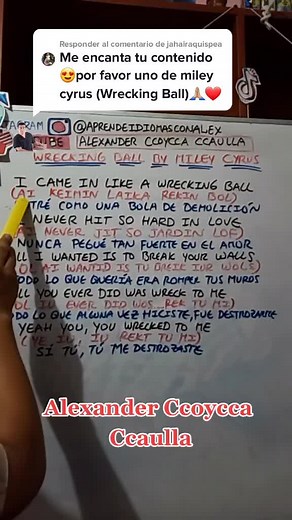 Responder al comentario de jahairaquispea
Me encanta tu contenido
😍por favor uno de miley
cyrus (Wrecking Ball)🙏🏼❤️
AGRAM @APRENDEIDIOMASCONALEX
UBE ALEXANDER CCOYCCA CCAULLA
WRECKING BALL BY MILEY CYRUS
I CAME IN LIKE A WRECKING BALL
(AI KEIMIN LAIKA REKIN BOL)
TRÉ COMO UNA BOLA DE DEMOLICIÓN
NEVER HIT SO HARD IN LOVE
NEVER JIT SO JARDIN LOF)
NUNCA PEGUÉ TAN FUERTE EN EL AMOR
LL I WANTED IS TO BREAK YOUR WALLS
OL AI WANTID IS TU BREIK IUR WOLS)
ODO LO QUE QUERÍA ERA ROMPER TUS MUROS
LL YOU EVER DID WAS WRECK TO ME
OL IU EVER DID WOS REK TU MI)
DO LO QUE ALGUNA VEZ HICISTE, FUE DESTROZARTE
YEAH YOU, YOU WRECKED TO ME
(YE, IU, IU REKT TU MI)
SÍ TÚ, TÚ ME DESTROZASTE
Alexander Ccoycca
Ccaulla